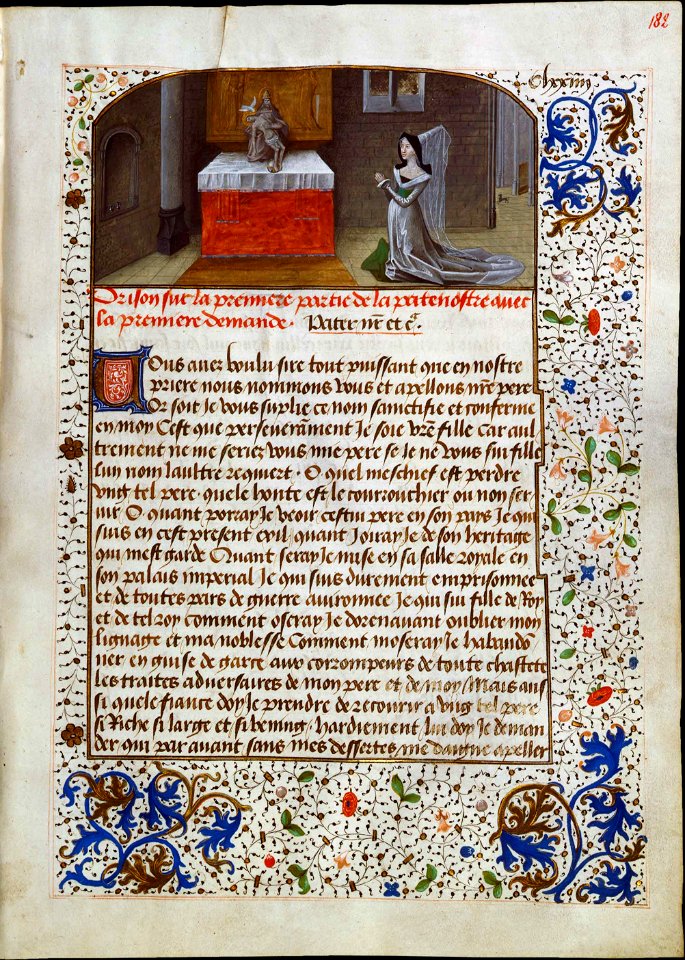 182
Orison sur la premiere partie de la patenostre avec
la premiere demande. Pater nr̄ et cᵃ.
Vous avez voulu sire tout puissant que en nostre
priere nous nommons vous et apellons mr̄e pere
Or soit Je vous suplie ce nom sainctifie et conferme
en moy Cest que perseveramēt Je soie vr̄e fille Car aul
trement ne me seriez vous mie pere se Je ne vous sui fille
lun nom laultre requiert. O quel meschief est perdre
vng tel pere. quele honte est le courrouchier ou non ser
uir O. quant porray Je veoir cestui pere en son pais Je qui
suis en cest present exil quant Joiray Je de son heritage
qui mest garde Quant seray Je mise en sa salle royale en
son palais imperial Je qui suis durement emprisonnee
et de toutes pars de guerre auironnee Je qui sui fille de Roy
et de tel roy comment oseray Je dorenauant oublier mon
lignage et ma noblesse Comment moseray Je habandō
ner en guise de garce aux corrompeurs de toute chastete
les traites aduersaires de mon pere et de moy Mais aus
si quele fiance doy Je prendre de recourir a vng tel pere
si Riche si large et si bening. hardiement lui doy Je deman
der qui par auant sans mes dessertes me daigne apeller